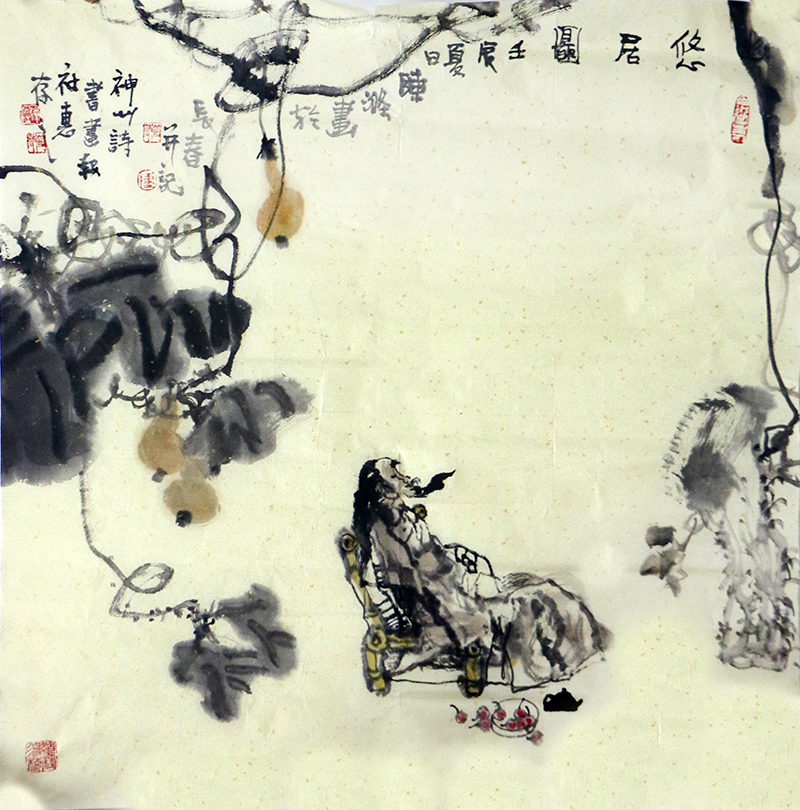 悠居圖壬辰夏日陳滌畫於
長春
并記
神州詩
書畫報
社惠
存